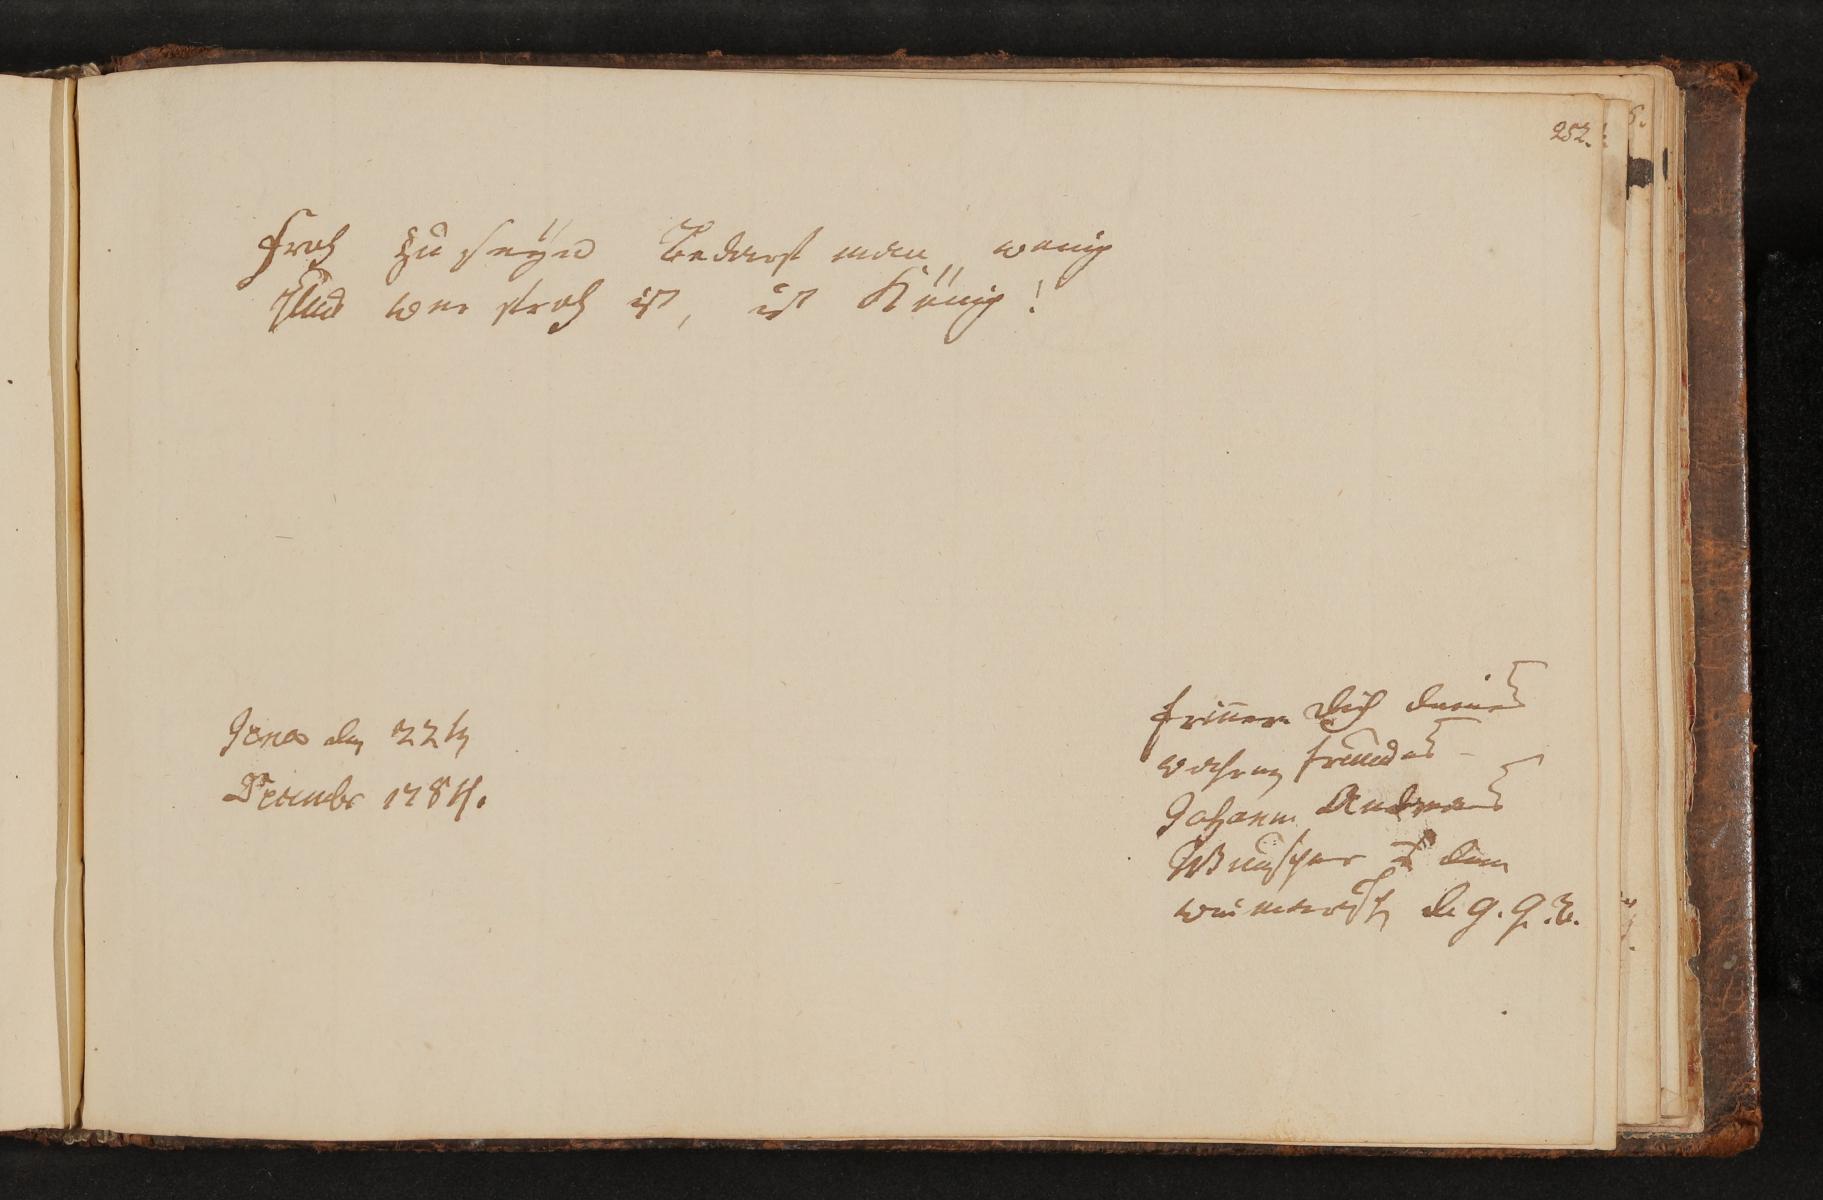 252.
Froh zu seÿn bedarf man wenig
Und wer froh ist, ist König!
Jena den 22t
Decembr 1784.
Erinnere Dich deines
wahren Freundes
Johann Andreas
aus dem
weimarisch d. G. G. B.